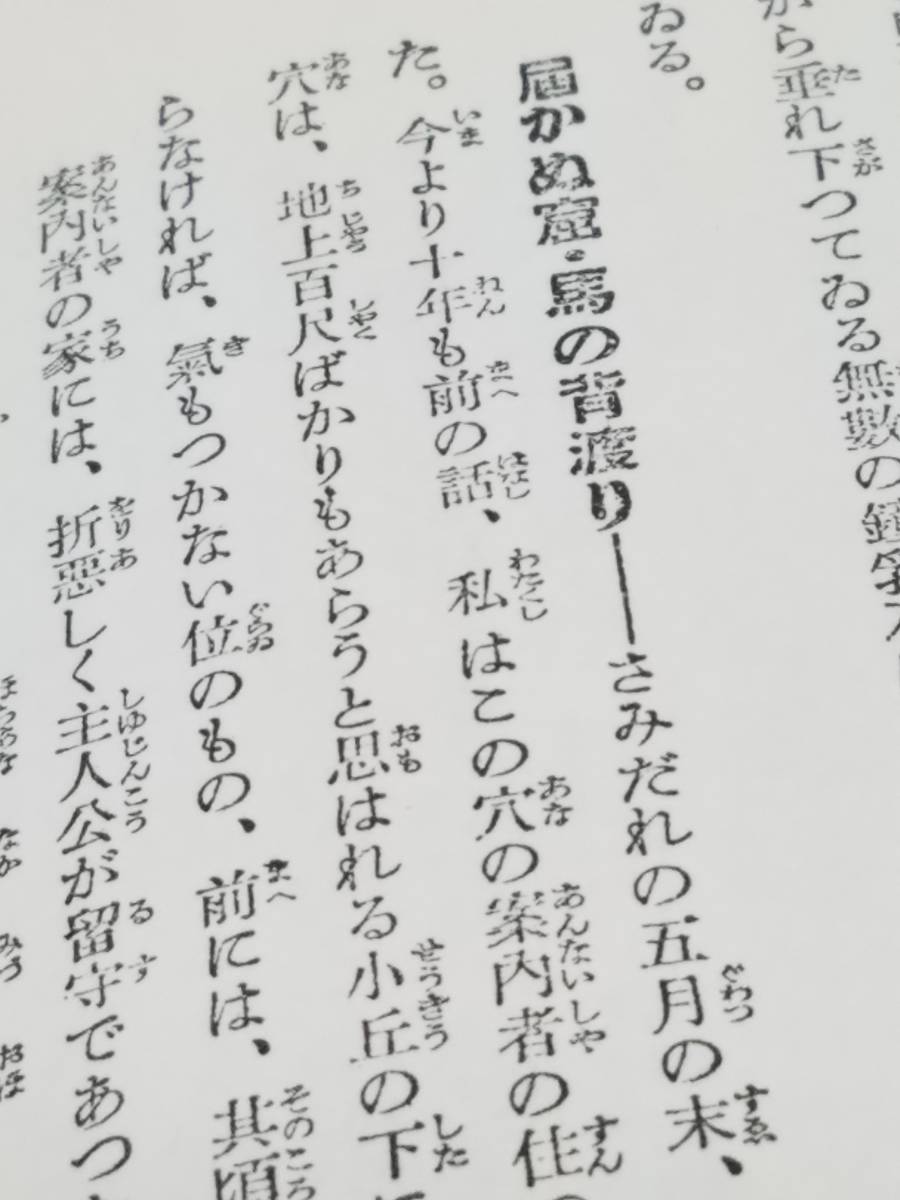 から垂れ下つてゐる無數の鐘乳
ゐる。
届かぬ窟・馬の背渡り――さみだれの五月の末、
た。今より十年も前の話、私はこの穴の案内者の住
穴は、地上百尺ばかりもあらうと思はれる小丘の下
らなければ、氣もつかない位のもの、前には、其頃
案内者の家には、折惡しく主人公が留守であつ